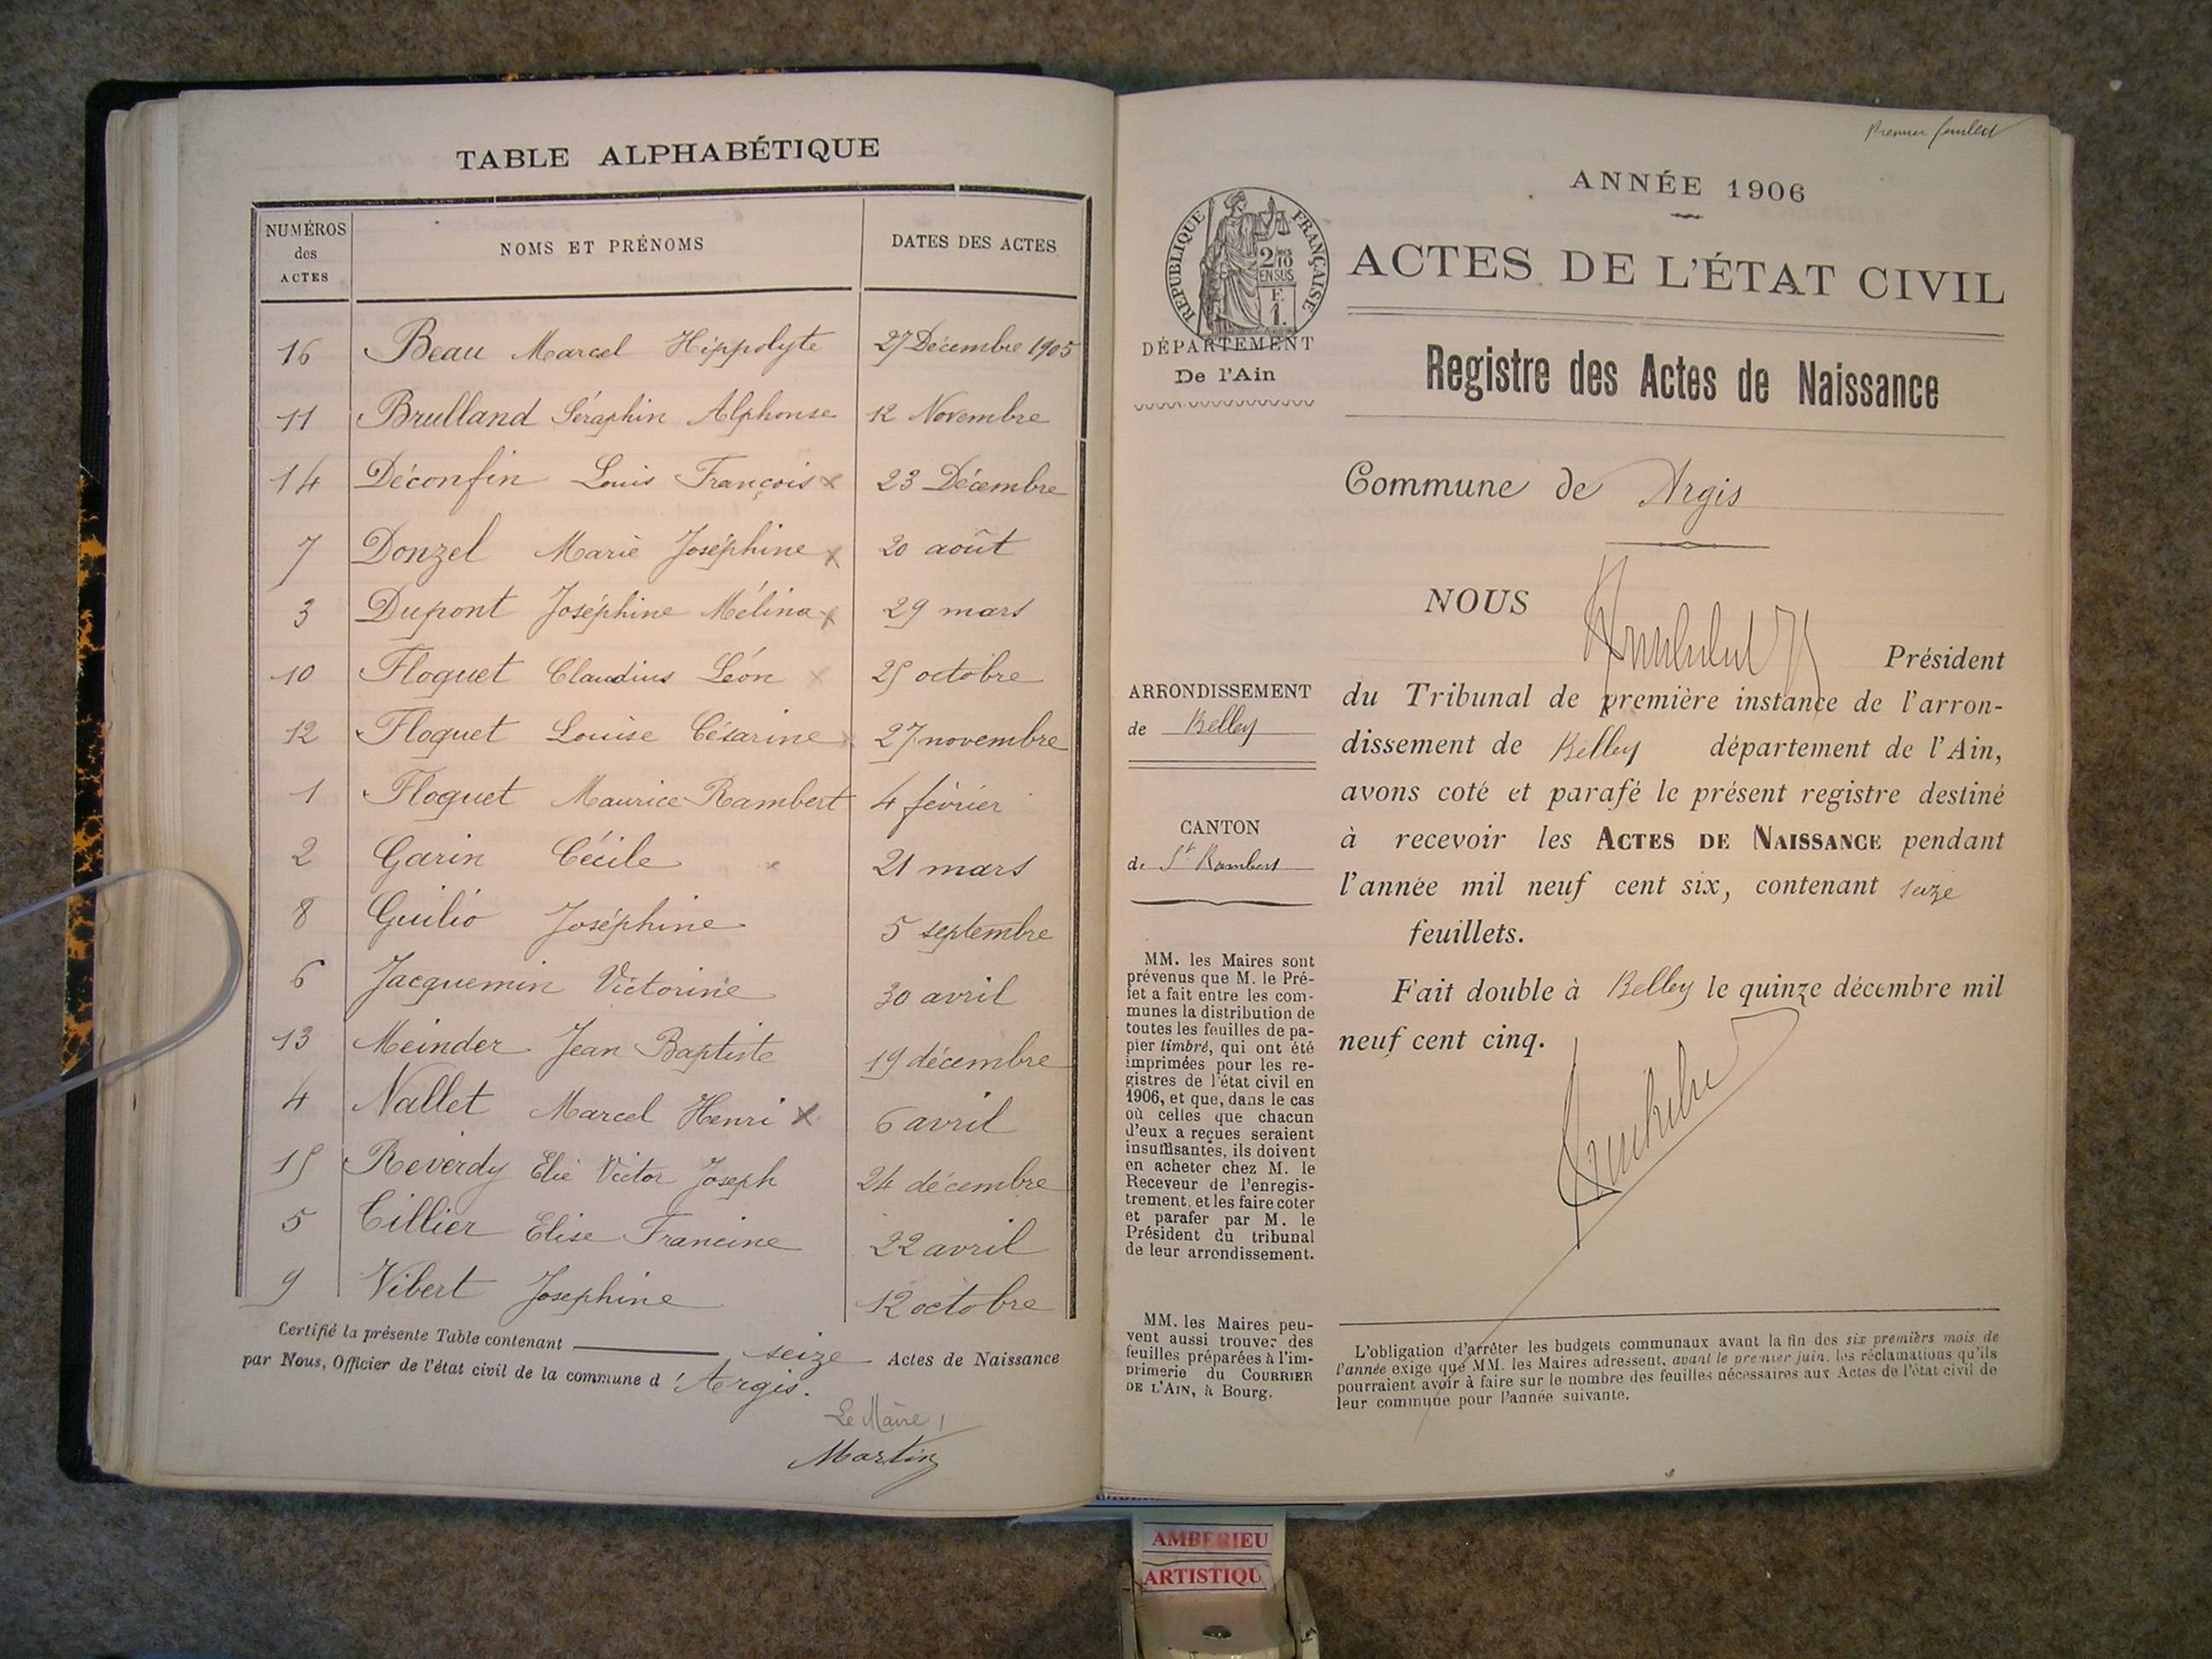 TABLE ALPHABÉTIQUE
NUMÉROS
des
ACTES
NOMS ET PRÉNOMS
DATES DES ACTES
16 Beau Marcel Hippolyte 27 Décembre 1905
11 Brulland Séraphin Alphonse 12 Novembre
14 Déconfin Louis François x 23 Décembre
7 Donzel Marie Joséphine x 20 août
3 Dupont Joséphine Mélina x 29 mars
10 Floquet Claudius Léon x 25 octobre
12 Floquet Louise Césarine x 27 novembre
1 Floquet Maurice Rambert 4 février
2 Garin Cécile x 21 mars
8 Guilio Joséphine 5 septembre
6 Jacquemin Victorine 30 avril
13 Meinder Jean Baptiste 19 décembre
4 Nallet Marcel Henri x 6 avril
15 Reverdy Elie Victor Joseph 24 décembre
5 Tillier Elise Francine 22 avril
9 Vibert Josephine 12 octobre
Certifié la présente Table contenant seize Actes de Naissance
par Nous, Officier de l'état civil de la commune d'Argis.
Le Maire,
Martin
Premier feuillet
ANNÉE 1906
REPUBLIQUE FRANÇAISE
2/10
EN SUS
F.
1.
ACTES DE L'ÉTAT CIVIL
DÉPARTEMENT
De l'Ain
Registre des Actes de Naissance
Commune de Argis
NOUS
Président
du Tribunal de première instance de l'arron-
dissement de Belley département de l'Ain,
avons coté et parafé le présent registre destiné
à recevoir les ACTES DE NAISSANCE pendant
l'année mil neuf cent six, contenant seize
feuillets.
Fait double à Belley le quinze décembre mil
neuf cent cinq.
ARRONDISSEMENT
de Belley
CANTON
de St Rambert
MM. les Maires sont
prévenus que M. le Pré-
fet a fait entre les com-
munes la distribution de
toutes les feuilles de pa-
pier timbré, qui ont été
imprimées pour les re-
gistres de l'état civil en
1906, et que, dans le cas
où celles que chacun
d'eux a reçues seraient
insuffisantes, ils doivent
en acheter chez M. le
Receveur de l'enregis-
trement, et les faire coter
et parafer par M. le
Président du tribunal
de leur arrondissement.
MM. les Maires peu-
vent aussi trouver des
feuilles préparées à l'im-
primerie du COURRIER
DE L'AIN, à Bourg.
L'obligation d'arrêter les budgets communaux avant la fin des six premiers mois de
l'année exige que MM. les Maires adressent, avant le premier juin, les réclamations qu'ils
pourraient avoir à faire sur le nombre des feuilles nécessaires aux Actes de l'état civil de
leur commune pour l'année suivante.
AMBERIEU
ARTISTIQU